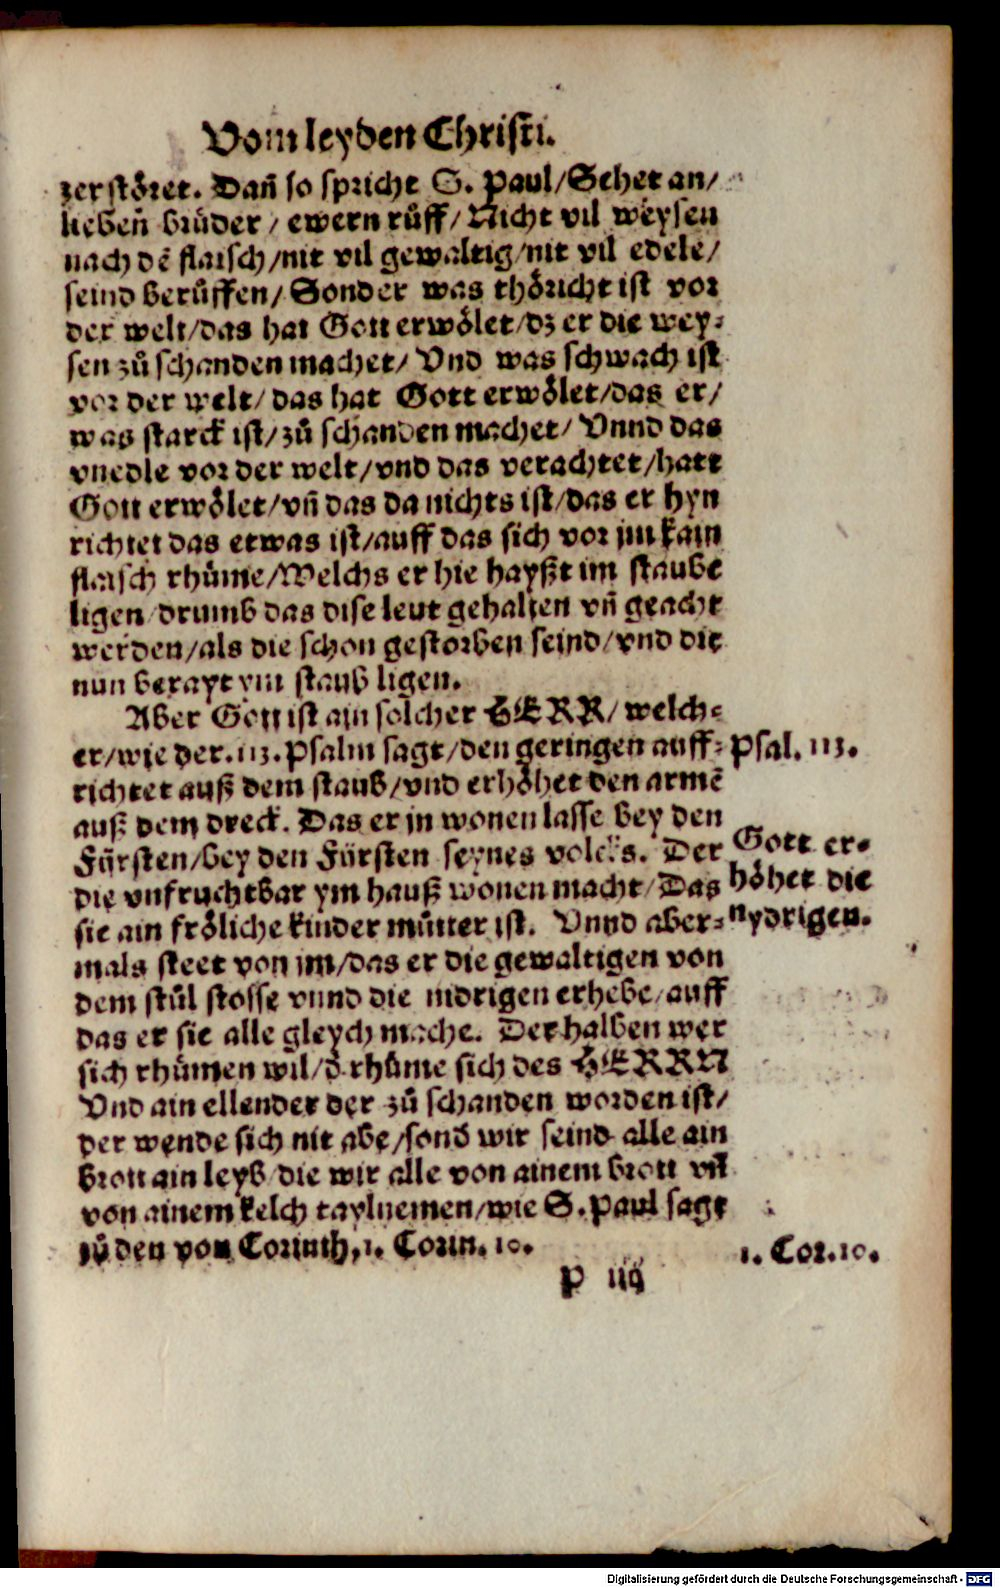 Vom leyden Christi.
zerstöret. Dañ so spricht S. Paul/Sehet an/
liebeñ brüder/ ewern růff/ Nicht vil weysen
nach dē flaisch/nit vil gewaltig/nit vil edele/
seind berůffen/ Sonder was thöricht ist vor
der welt/das hat Gott erwölet/dz er die wey⸗
sen zů schanden machet/ Vnd was schwach ist
vor der welt/ das hat Gott erwölet/das er/
was starck ist/ zů schanden machet/ Vnnd das
vnedle vor der welt/vnd das verachtet/hatt
Gott erwölet/vñ das da nichts ist/das er hyn
richtet das etwas ist/auff das sich vor jm kain
flaisch rhůme/Welchs er hie hayßt im staube
ligen/drumb das dise leut gehalten vñ geacht
werden/als die schon gestorben seind/vnd die
nun berayt ym staub ligen.
Aber Gott ist ain solcher HERR/ welch⸗
er/wie der.113.Psalm sagt/den geringen auff⸗
richtet auß dem staub/vnd erhöhet den armē
auß dem dreck. Das er jn wonen lasse bey den
Fürsten/bey den Fürsten seynes volcks. Der
die vnfruchtbar ym hauß wonen macht/Das
sie ain fröliche kinder můtter ist. Vnnd aber⸗
mals steet von jm/das er die gewaltigen von
dem stůl stosse vnnd die nidrigen erhebe/auff
das er sie alle gleych mache. Derhalben wer
sich rhůmen wil/d̄ rhůme sich des HERRN
Vnd ain ellender der zů schanden worden ist/
der wende sich nit abe/sond̄ wir seind alle ain
brott ain leyb/die wir alle von ainem brott vñ
von ainem kelch taylnemen/wie S.Paul sagt
zů den von Corinth,1. Corin. 10.
P iiij
Psal. 113.
Gott er⸗
höhet die
nydrigen.
1. Cor.10.
Digitalisierung gefördert durch die Deutsche Forschungsgemeinschaft - DFG